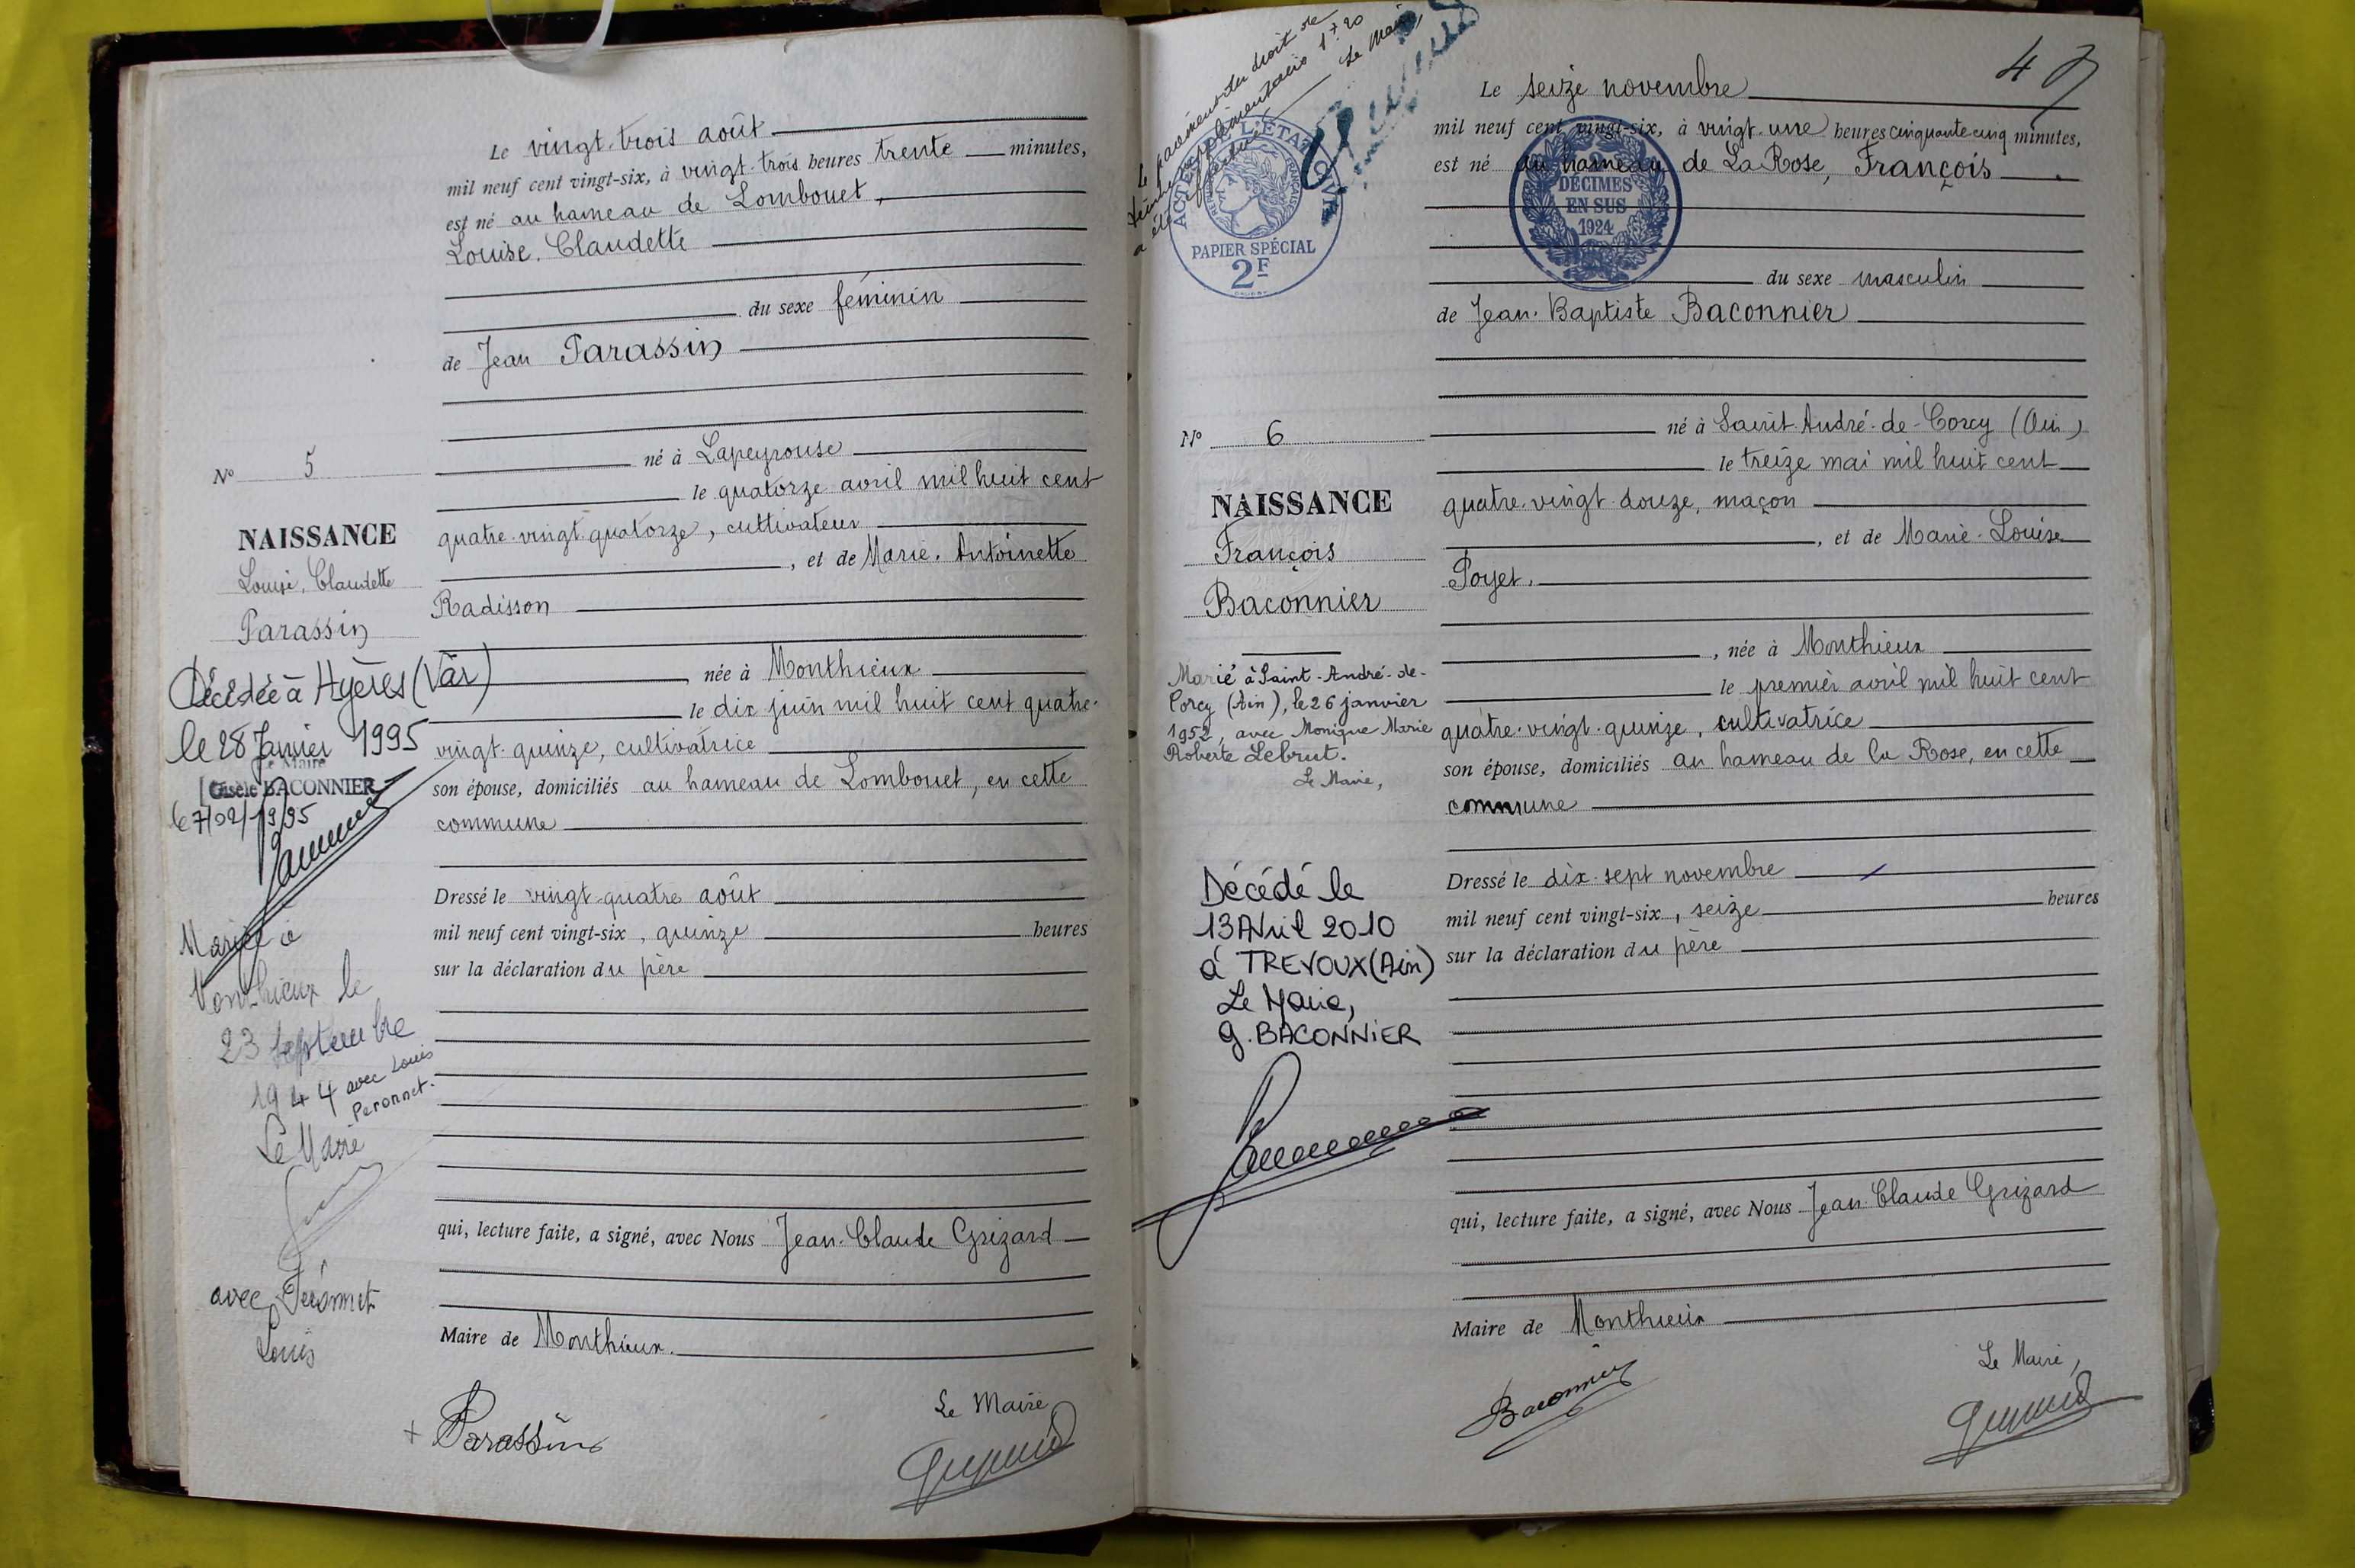 Le vingt-trois août
mil neuf cent vingt-six, à vingt-trois heures trente minutes,
est né au hameau de Lombouet,
Louise, Claudette
du sexe féminin
de Jean Parassin
né à Lapeyrouse
le quatorze avril mil huit cent
quatre-vingt-quatorze, cultivateur
, et de Marie, Antoinette
Radisson
née à Monthieux
le dix juin mil huit cent quatre-
vingt-quinze, cultivatrice
son épouse, domiciliés au hameau de Lombouet, en cette
commune
Dressé le vingt-quatre août
mil neuf cent vingt-six, quinze heures
sur la déclaration du père
qui, lecture faite, a signé, avec Nous Jean-Claude Grizard
Maire de Monthieux.
Le Maire
Parassin
N° 5
NAISSANCE
Louise, Claudette
Parassin
Décédée à Hyères (Var)
le 28 Janvier 1995
Le Maire
Gisèle BACONNIER
Mariée à
Monthieux le
23 septembre
1944 avec Louis
Peronnet.
Le Maire
avec Peronnet
Louis
Le paiement du droit de
a été
1F20
Le Maire,
ACTES DE L'ÉTAT CIVIL
RÉPUBLIQUE FRANÇAISE
PAPIER SPÉCIAL
2F
DÉCIMES
EN SUS
1924
47
Le seize novembre
mil neuf cent vingt-six, à vingt-une heures cinquante-cinq minutes,
est né au hameau de La Rose, François
du sexe masculin
de Jean-Baptiste Baconnier
né à Saint-André-de-Corcy (Ain)
le treize mai mil huit cent
quatre-vingt-douze, maçon
, et de Marie-Louise
Poyet.
, née à Monthieux
le premier avril mil huit cent
quatre-vingt-quinze, cultivatrice
son épouse, domiciliés au hameau de la Rose, en cette
commune
Dressé le dix-sept novembre
mil neuf cent vingt-six, seize heures
sur la déclaration du père
qui, lecture faite, a signé, avec Nous Jean-Claude Grizard
Maire de Monthieux
Le Maire,
Baconnier
N° 6
NAISSANCE
François
Baconnier
Marié à Saint-André-de-
Corcy (Ain), le 26 janvier
1952, avec Monique Marie
Roberte Lebrut.
Le Maire,
Décédé le
13 Avril 2010
à TREVOUX (Ain)
Le Maire,
G. BACONNIER